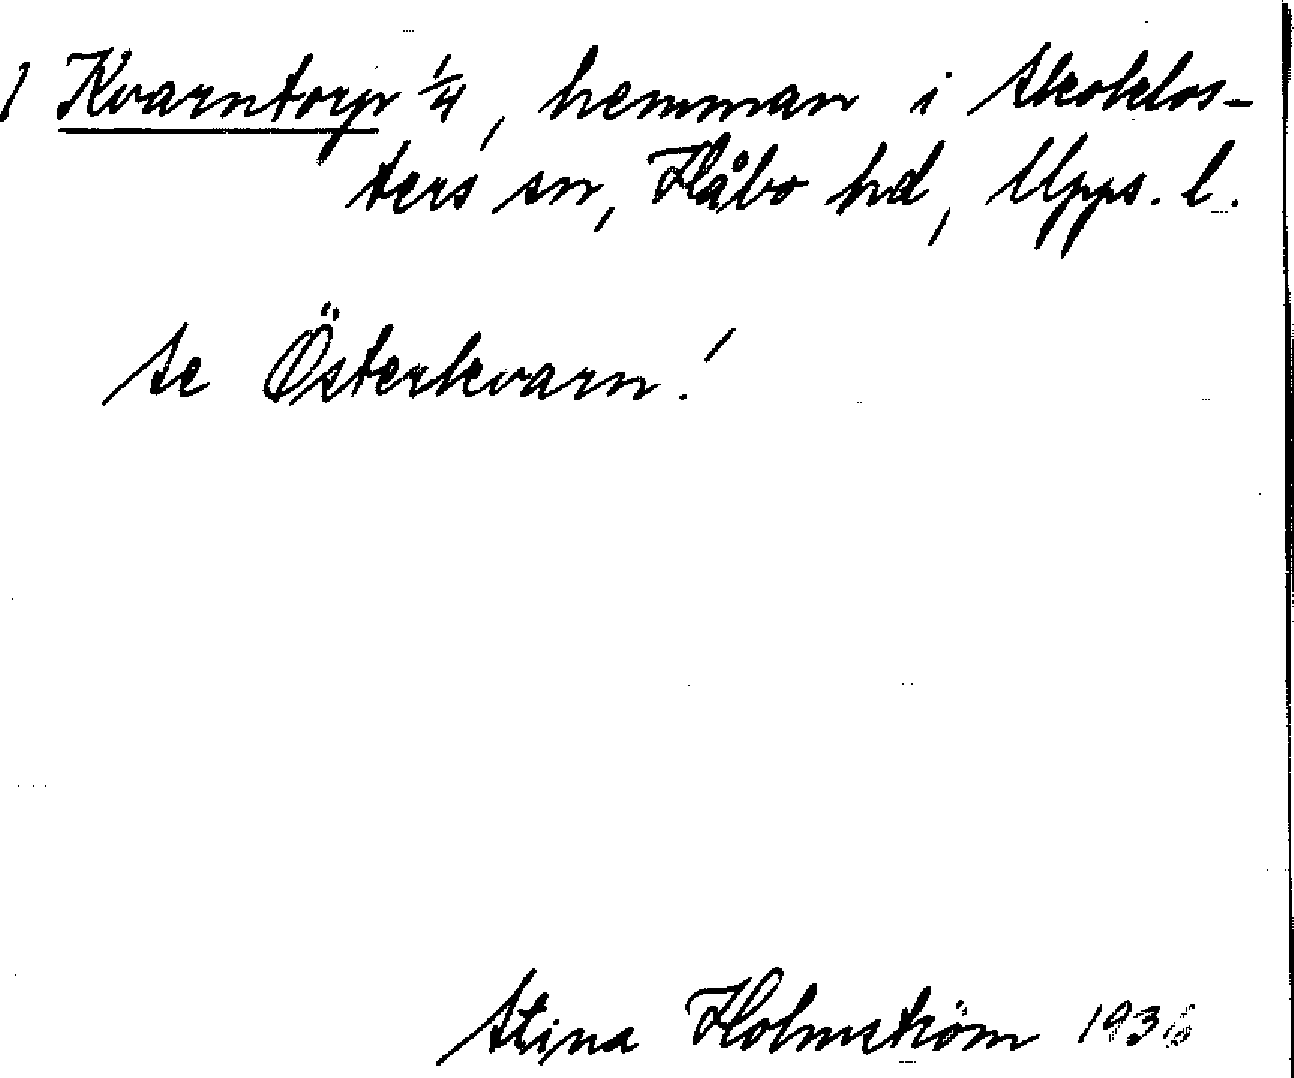 1 Kvarntorp 1/4, hemman i Skoklos-
ters sn, Håbo hd, Upps. l.
Se Österkvarn!
Stina Holmström 1936